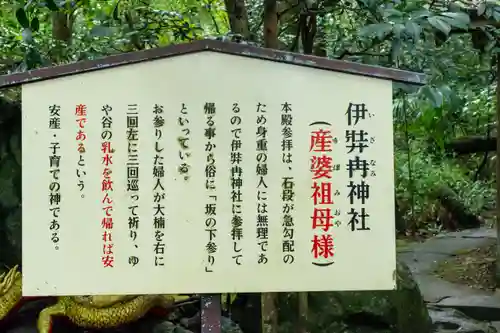 伊弉冉神社
いざなみ
(産婆祖母様)
うぼみおや
本殿参拝は、石段が急勾配の
ため身重の婦人には無理であ
るので伊弉冉神社に参拝して
帰る事から俗に「坂の下参り」
といっている。
お参りした婦人が大楠を右に
三回左に三回巡って祈り、ゆ
や谷の乳水を飲んで帰れば安
産であるという。
安産・子育ての神である。